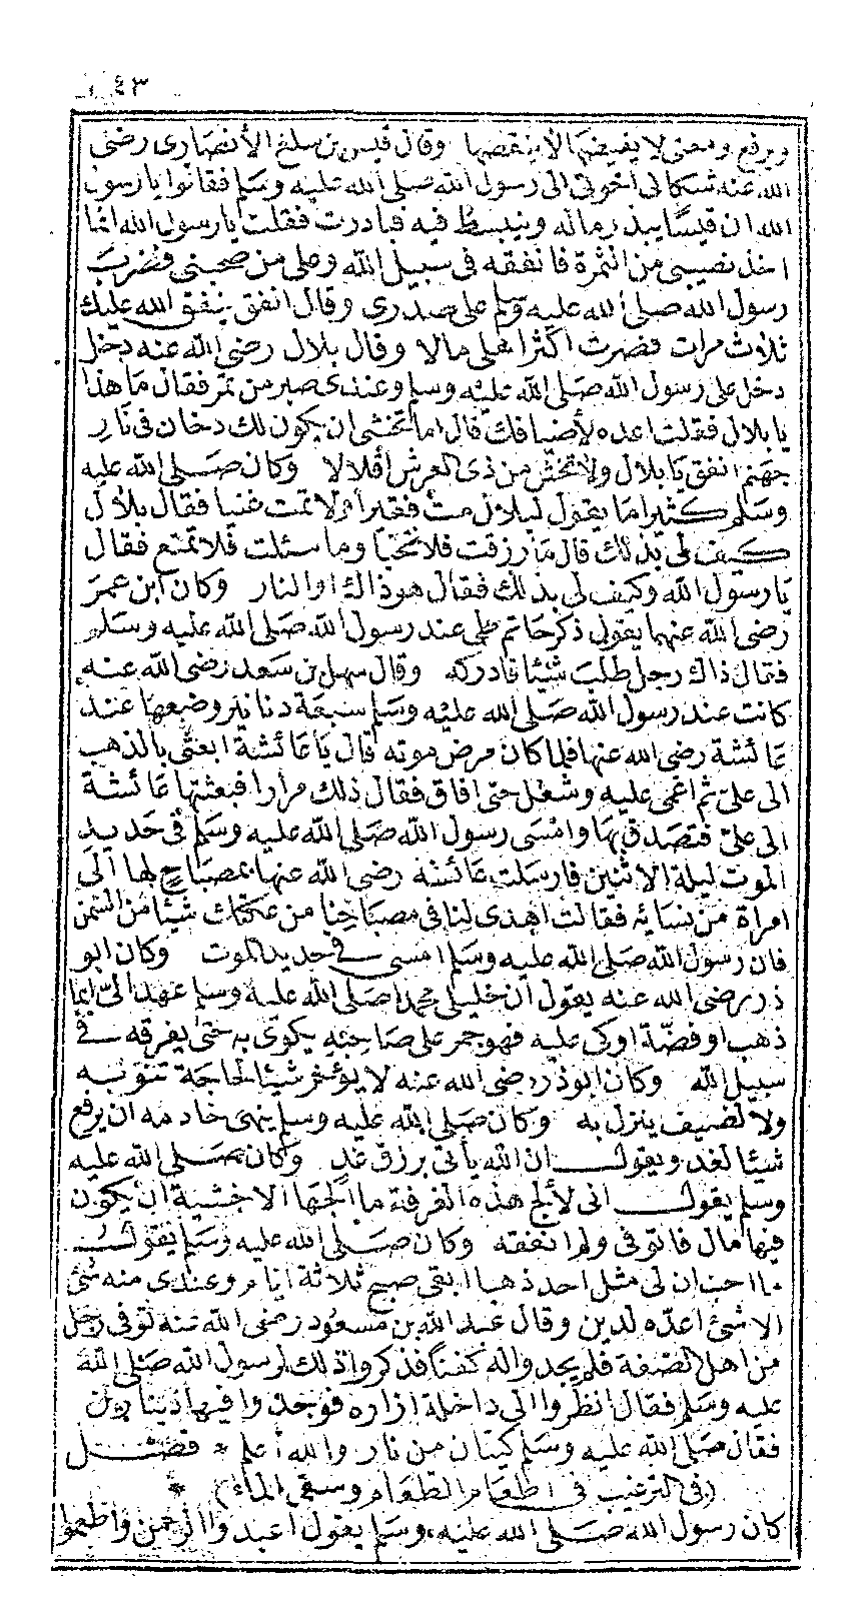 ٢٤٣
ويرفع ومعنى لا يغيضها الا ينقصها وقال قيس بن سلع الأنصارى رضى
الله عنه شكانى اخوتى الى رسول الله صلى الله عليه وسلم فقالوا يا رسول
الله ان قيسا يبذر ماله وينبسط فيه فبادرت فقلت يا رسول الله انما
اخذ نصيبى من الثمرة فانفقه فى سبيل الله وعلى من صحبنى فضرب
رسول الله صلى الله عليه وسلم على صدرى وقال انفق ينفق الله عليك
ثلاث مرات فصرت اكثر اهلى مالا وقال بلال رضى الله عنه دخل
دخل على رسول الله صلى الله عليه وسلم وعندى صبر من تمر فقال ما هذا
يا بلال فقلت اعده لأضيافك قال اما تخشى ان يكون لك دخان فى نار
جهنم انفق يا بلال ولا تخش من ذى العرش اقلالا وكان صلى الله عليه
وسلم كثيرا ما يقول لبلال مت فقيرا ولا تمت غنيا فقال بلال
كيف لى بذلك قال ما رزقت فلا تخبأ وما سئلت فلا تمنع فقال
يا رسول الله وكيف لى بذلك فقال هو ذاك او النار وكان ابن عمر
رضى الله عنهما يقول ذكر حاتم طى عند رسول الله صلى الله عليه وسلم
فقال ذاك رجل طلب شيئا فادركه وقال سهل بن سعد رضى الله عنه
كانت عند رسول الله صلى الله عليه وسلم سبعة دنانير وضعها عند
عائشة رضى الله عنها فلما كان مرض موته قال يا عائشة ابعثى بالذهب
الى على ثم اغمى عليه وشغل حتى افاق فقال ذلك مرارا فبعثتها عائشة
الى على فتصدق بها وامسى رسول الله صلى الله عليه وسلم فى حديد
الموت ليلة الاثنين فارسلت عائشة رضى الله عنها بمصباح لها الى
امراة من نسائه فقالت اهدى لنا فى مصباحنا من عكتك شيئا من السمن
فان رسول الله صلى الله عليه وسلم امسى فى حديد الموت وكان ابو
ذر رضى الله عنه يقول ان خليلى محمدا صلى الله عليه وسلم عهد الى ايما
ذهب او فضة اوكى عليه فهو جمر على صاحبه يكوى به حتى يفرقه فى
سبيل الله وكان ابو ذر رضى الله عنه لا يؤخر شيئا لحاجة تنوبه
ولا لضيف ينزل به وكان صلى الله عليه وسلم ينهى خادمه ان يرفع
شيئا لغد ويقول ان الله يأتى برزق غد وكان صلى الله عليه
وسلم يقول انى لألج هذه الغرفة ما الجها الا خشية ان يكون
فيها مال فاتوفى ولم انفقه وكان صلى الله عليه وسلم يقول
ما احب ان لى مثل احد ذهبا ابقى صبح ثلاثة ايام وعندى منه شئ
الا شئ اعده لدين وقال عبد الله بن مسعود رضى الله عنه توفى رجل
من اهل الصفة فلم يجدوا له كفنا فذكروا ذلك لرسول الله صلى الله
عليه وسلم فقال انظروا الى داخلة ازاره فوجدوا فيها دينارين
فقال صلى الله عليه وسلم كيتان من نار والله أعلم * فصل
(فى الترغيب فى اطعام الطعام وسقى الماء) *
كان رسول الله صلى الله عليه وسلم يقول اعبدوا الرحمن واطعموا